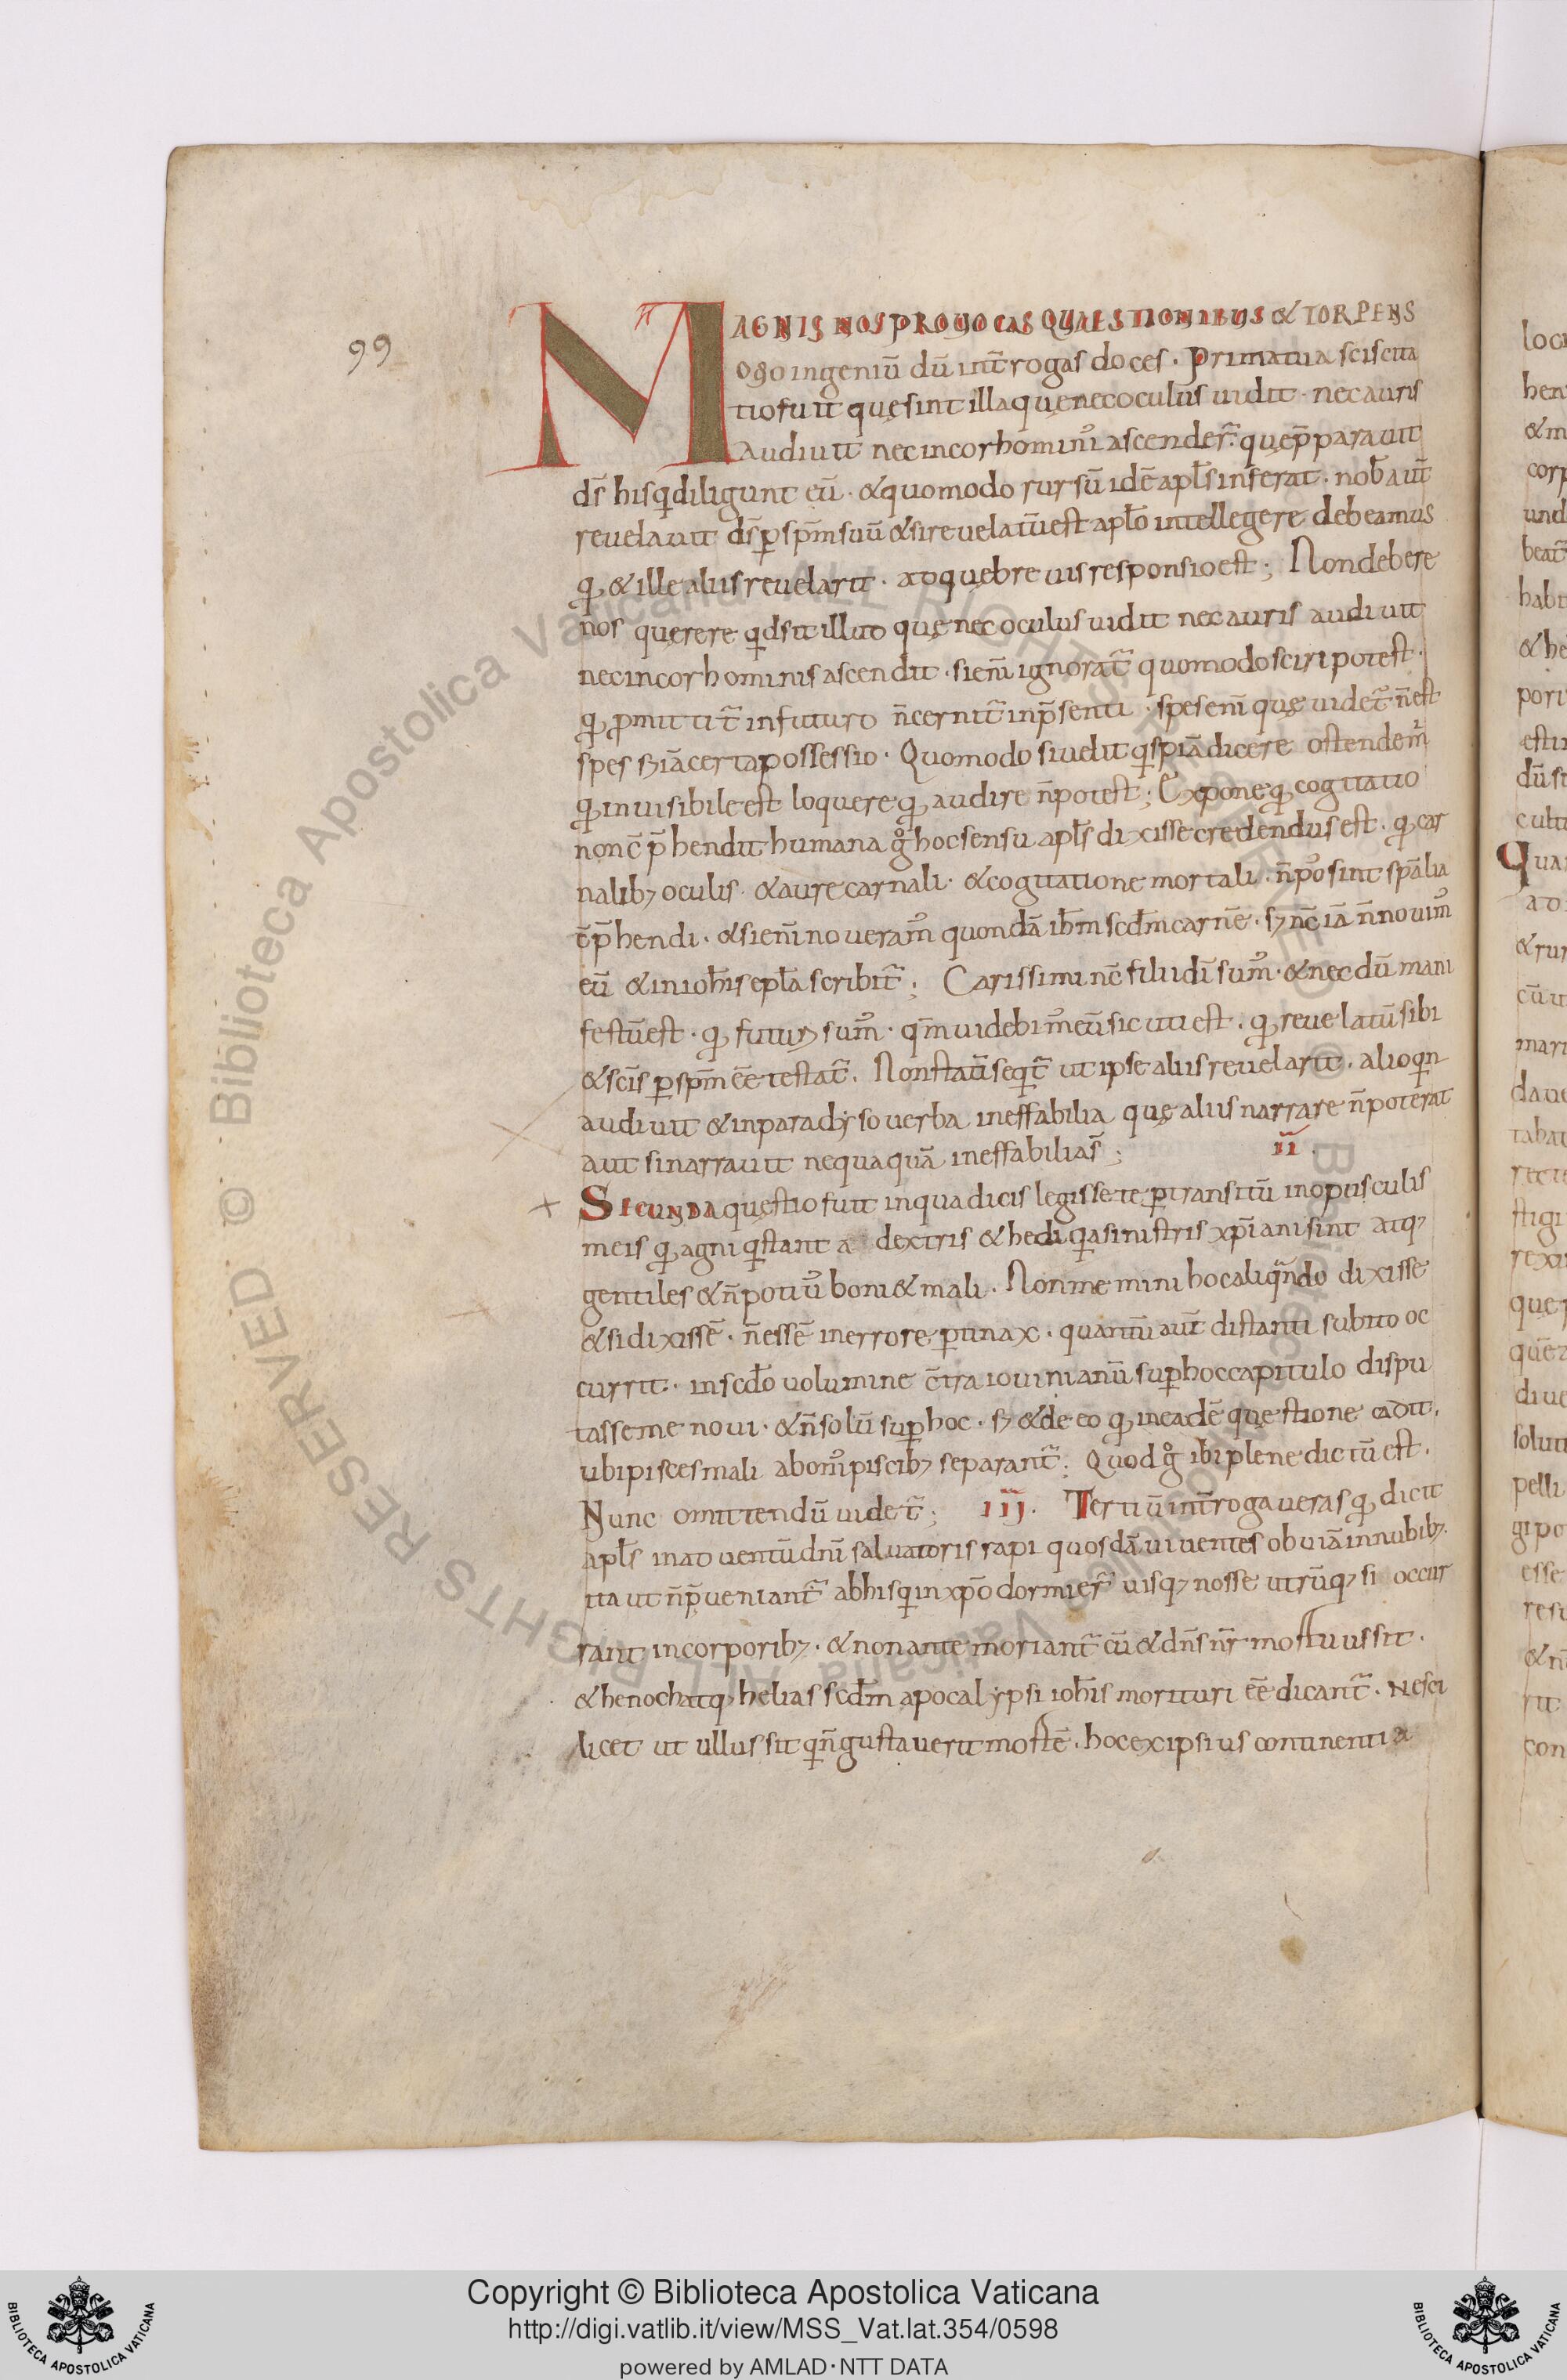 99
MAGNIS NOS PROVOCAS QUAESTIONIBUS & TORPENS
otio ingeniū dū int̄rogas doces . Prima tua sciscita
tio fuit quę sint illa quę nec oculus uidit . nec auris
audiuit nec in cor hominꝰ ascender̄ . quę p̄parauit
ds̄ his qͥ diligunt eū . & quomodo rursū idē apl̄s inferat . nob̄ aūt
reuelauit ds̄ ꝑ spm̄ suū & si reuelatū est aplō intellegere debeamus
qd̵ & ille aliis reuelarit . ad quę breuis responsio est ; Non debere
nos querere qͥd sit illud quę nec oculus uidit nec auris audiuit
nec in cor hominis ascendit . si enī ignorat᷑ quomodo sciri potest .
qd̵ ꝓmittit᷑ in futuro n̄ cernit᷑ in p̄senti . spes enī quę uidet᷑ n̄ est
spes sꝫ iā certa possessio . Quomodo si uelit qͥspiā dicere ostende m̄
qd̵ inuisibile est loquere qd̵ audire n̄ potest ; Expone qd̵ cogitatio
non cp̄hendit humana gͦ hoc sensu apl̄s dixisse credendus est . qd̵ car
nalibꝫ oculis . & aure carnali . & cogitatione mortali . n̄ possint spālia
c̄p̄hendi . & si enī noueramꝰ quondā ihm̄ scdm̄ carnē . sꝫ nc̄ iā n̄ nouimꝰ
eū & in ioh̄is eplā scribit᷑ ; Carissimi nc̄ filii dī sumꝰ . & necdū mani
festū est . qd̵ futuri sumꝰ . qm̄ uidebimꝰ eū sicuti est . qd̵ reuelatū sibi
& scīs ꝑ spm̄ ee̅ testat᷑ . Non statī seqͥt᷑ ut ipse aliis reuelarit . alioqͥn
audiuit & in paradyso uerba ineffabilia quę aliis narrare n̄ poterat
aut si narrauit nequaquā ineffabilia s̄ ; II .
SECUNDA quęstio fuit in qua dicis legisse te ꝑtransitū in opusculis
meis qd̵ agni qͥ stant a dextris & hedi qͥ a sinistris xp̄iani sint atqꝫ
gentiles & n̄ potiꝰ boni & mali . Non memini hoc aliqn̄do dixisse
& si dixissē . n̄ essē in errore ꝑtinax . quantū aūt distanti subito oc
currit . in scdō uolumine c̄tra iouinianū suꝑ hoc capitulo dispu
tasse me noui . & n̄ solū suꝑ hoc . sꝫ & de eo qd̵ in eadē quęstione cadit .
ubi pisces mali a bonꝰ piscibꝫ separant᷑ ; Quod gͦ ibi plene dictū est .
Nunc omittendū uidet᷑ ; III . Tertiū int̄rogaueras qd̵ dicit
apl̄s in aduentū dnī saluatoris rapi quosdā uiuentes obuiā in nubibꝫ .
ita ut n̄ p̄ueniant᷑ ab his qͥ in xp̄o dormier̄ uisqꝫ nosse utrū qꝫ si occur
rant in corporibꝫ . & non ante moriant᷑ cū & dns̄ nr̄ mortuus sit .
& henoch atqꝫ helias scdm̄ apocalypsi ioh̄is morituri ee̅ dicant᷑ . Ne sci
licet ut ullus sit qͥ n̄ gustauerit mortē . hoc ex ipsius continentia
loca
hen
& m
corp
und
habi
& he
pori
Qua
& rur
mari
solut
pelli
esse
con
Copyright © Biblioteca Apostolica Vaticana
http://digi.vatlib.it/view/MSS_Vat.lat.354/0598
powered by AMLAD·NTT DATA
BIBLIOTECA APOSTOLICA VATICANA
BIBLIOTECA APOSTOLICA VATICANA